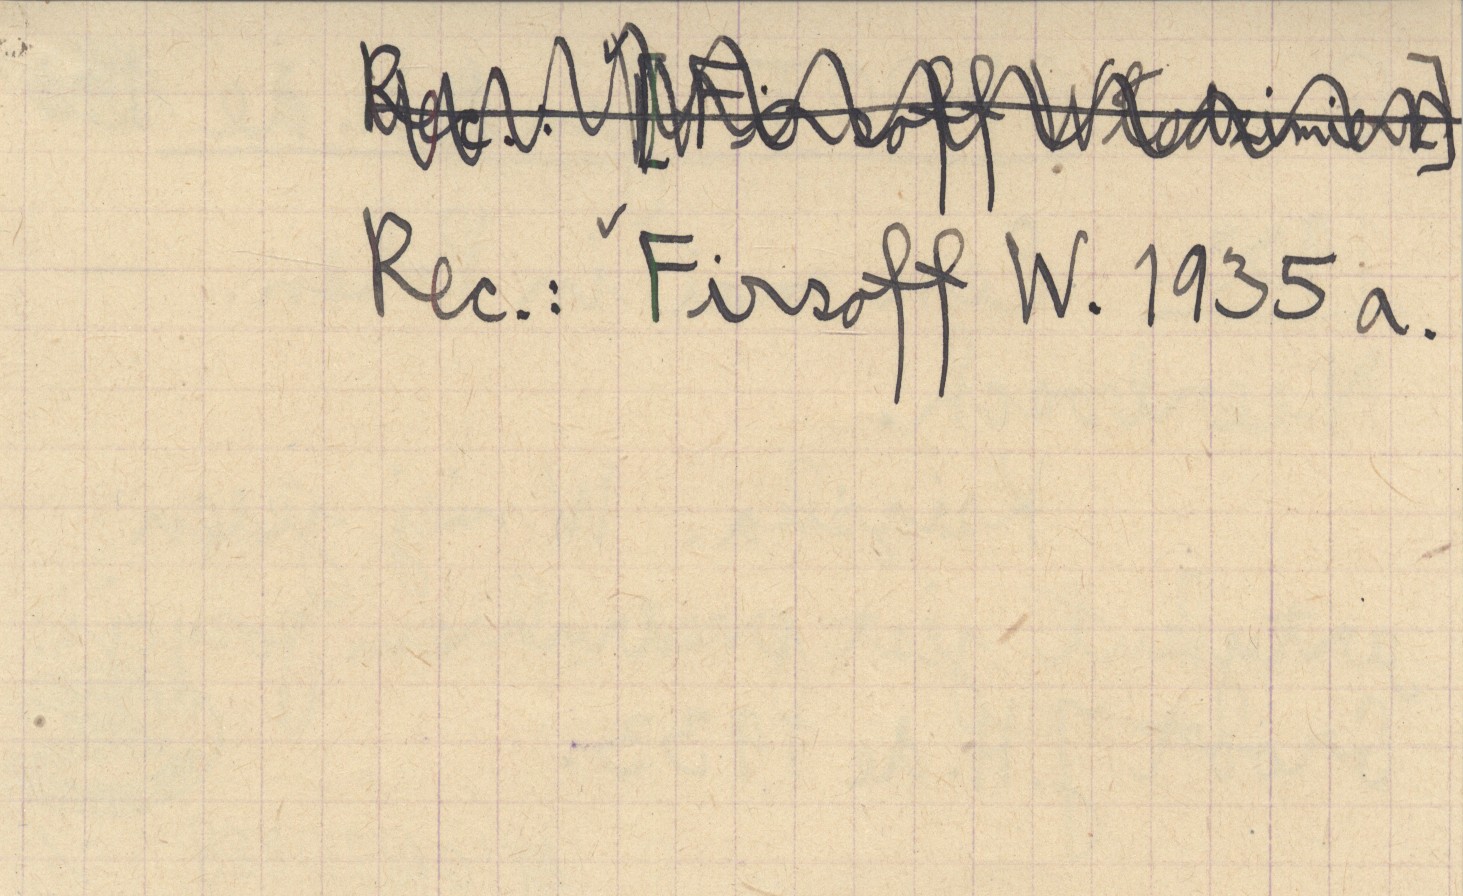 Rec.: [Firsoff Włodzimierz]
Rec.: ✓Firsoff W. 1935 a.